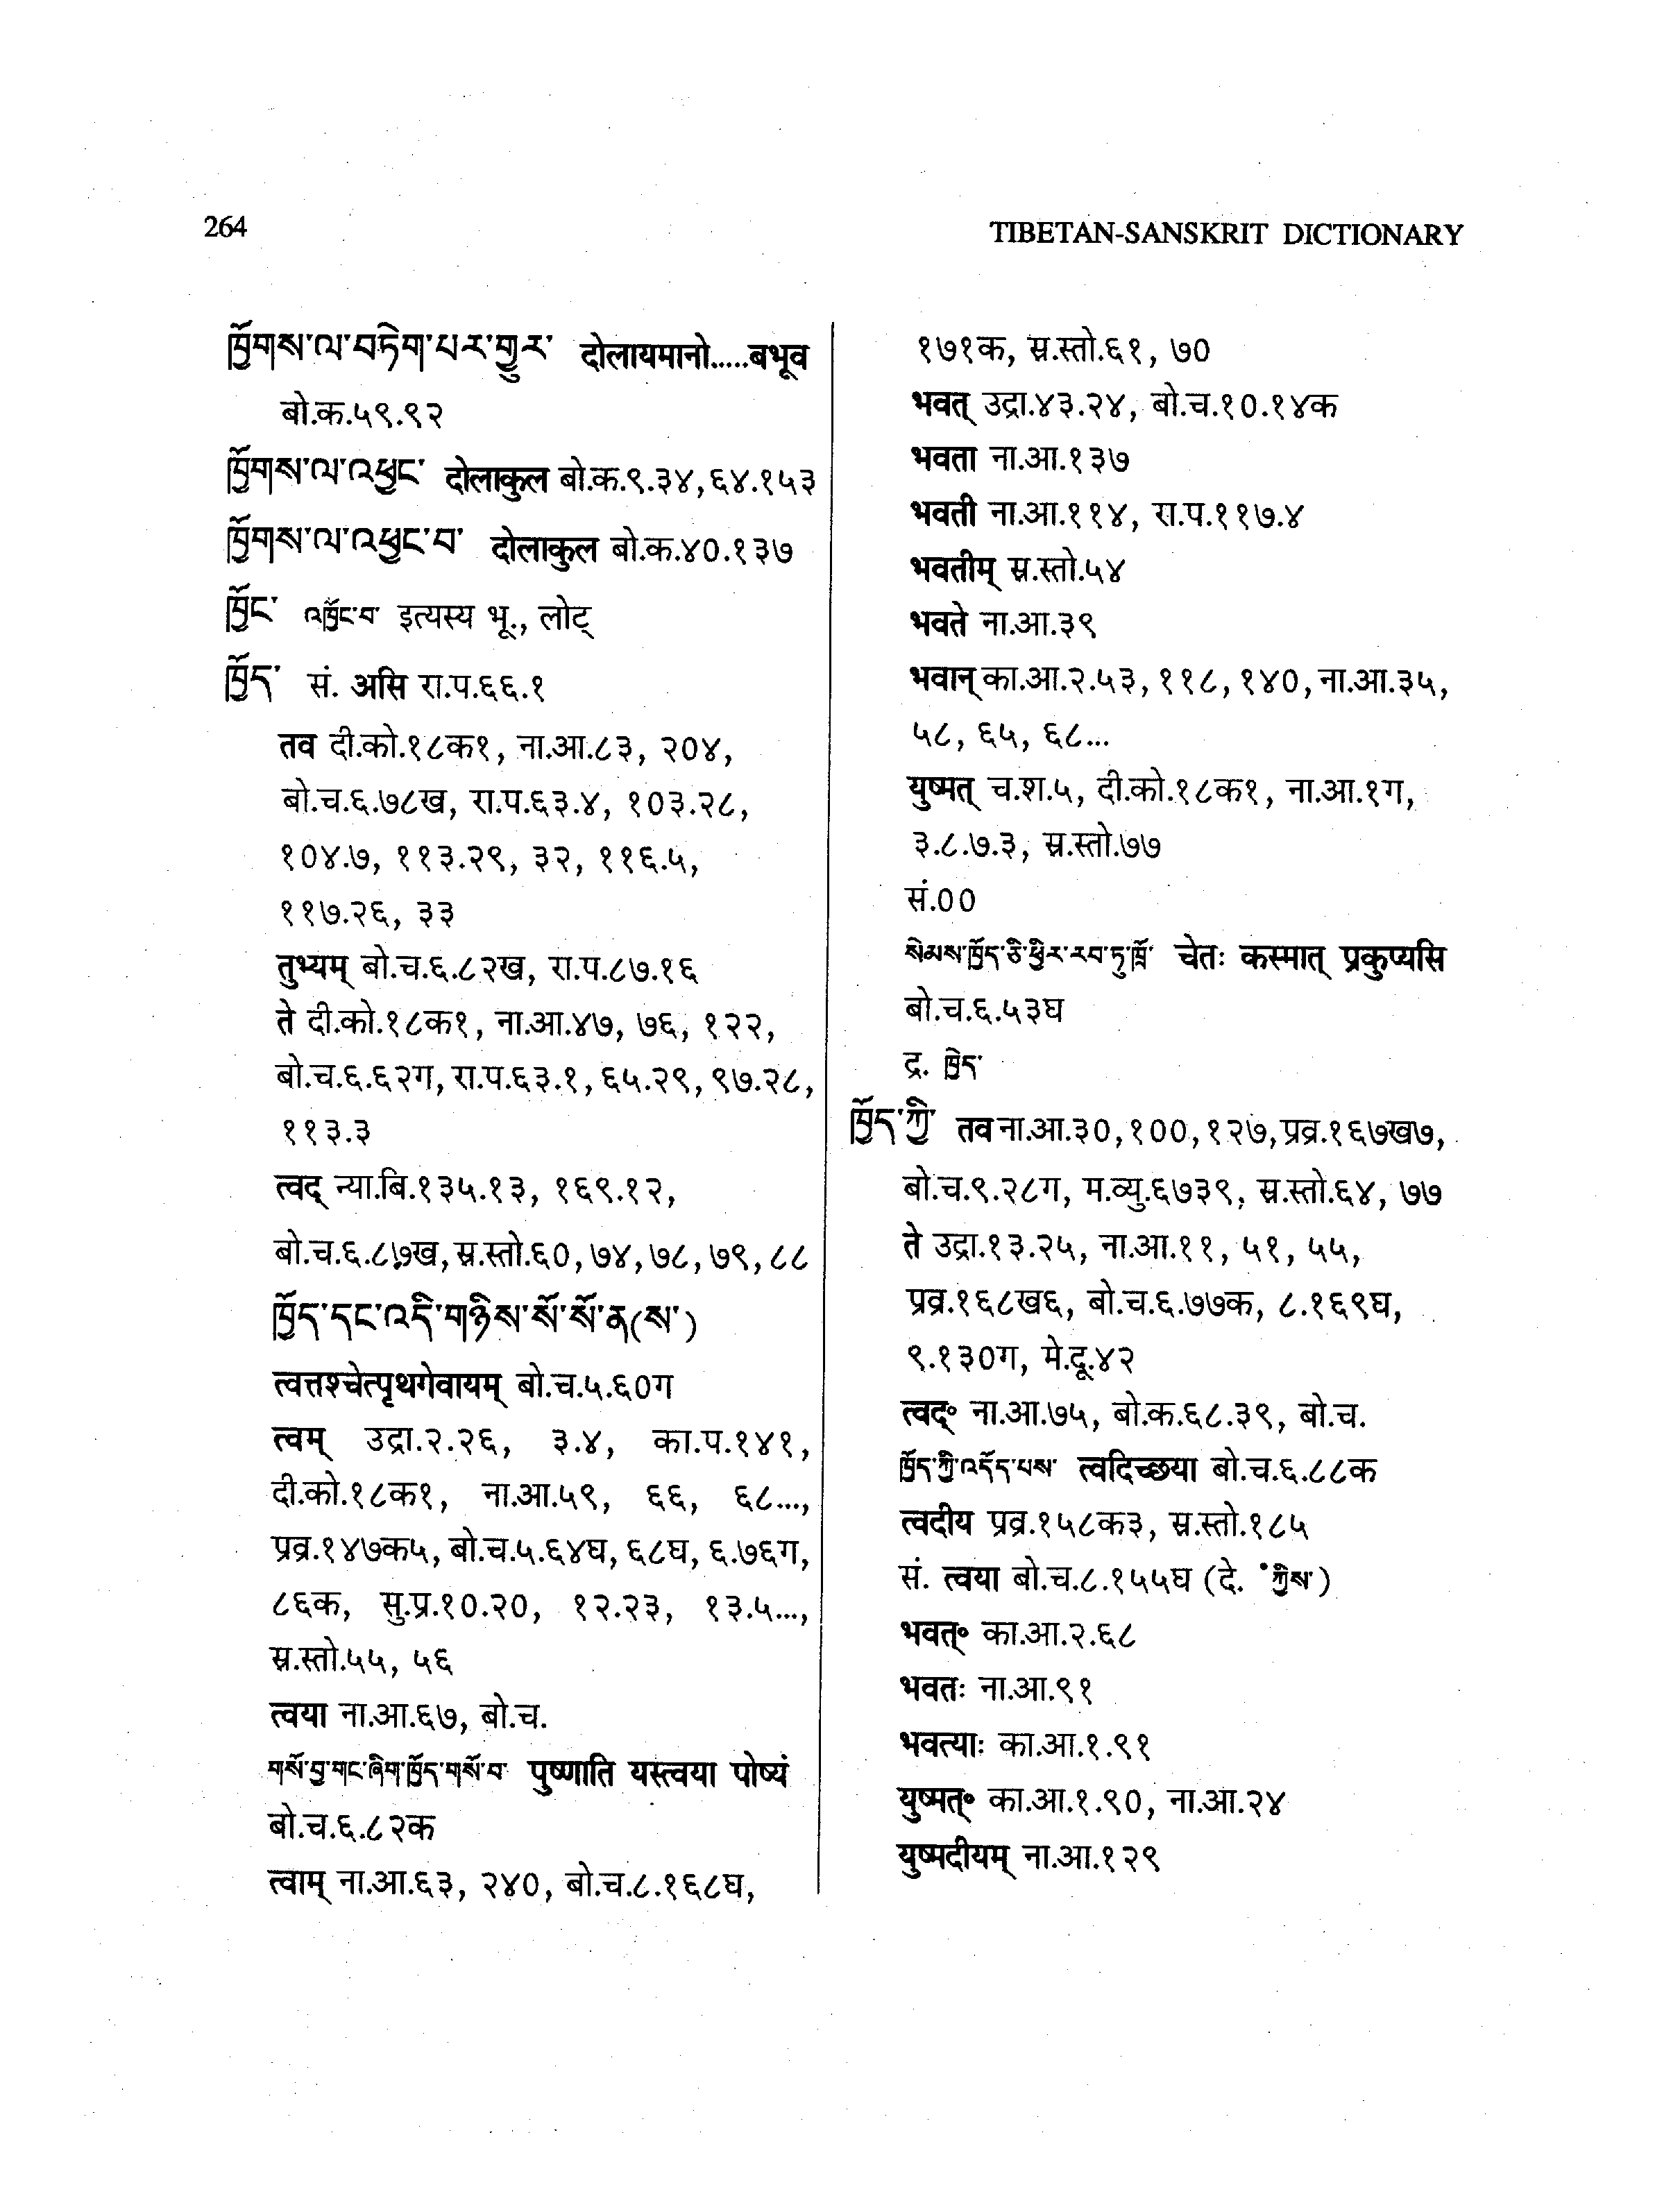 264
TIBETAN-SANSKRIT DICTIONARY
ཁྱོགས་ལ་བཏེག་པར་གྱུར་ दोलायमानो.....बभूव
बो.क.५९.९२
ཁྱོགས་ལ་འཕྱང་ दोलाकुल बो.क.९.३४,६४.१५३
ཁྱོགས་ལ་འཕྱང་བ་ दोलाकुल बो.क.४०.१३७
ཁྱོང་ འཁྱོང་བ་ इत्यस्य भू., लोट्
ཁྱོད་ सं. असि रा.प.६६.१
तव दी.को.१८क१, ना.आ.८३, २०४,
बो.च.६.७८ख, रा.प.६३.४, १०३.२८,
१०४.७, ११३.२९, ३२, ११६.५,
११७.२६, ३३
तुभ्यम् बो.च.६.८२ख, रा.प.८७.१६
ते दी.को.१८क१, ना.आ.४७, ७६, १२२,
बो.च.६.६२ग, रा.प.६३.१, ६५.२९, ९७.२८,
११३.३
त्वद् न्या.बि.१३५.१३, १६९.१२,
बो.च.६.८७ख, स्र.स्तो.६०, ७४, ७८, ७९, ८८
ཁྱོད་དང་འདི་གཉིས་སོ་སོ་ན(ས་)
त्वत्तश्चेत्पृथगेवायम् बो.च.५.६०ग
त्वम् उद्रा.२.२६, ३.४, का.प.१४१,
दी.को.१८क१, ना.आ.५९, ६६, ६८...,
प्रव्र.१४७क५, बो.च.५.६४घ, ६८घ, ६.७६ग,
८६क, सु.प्र.१०.२०, १२.२३, १३.५...,
स्र.स्तो.५५, ५६
त्वया ना.आ.६७, बो.च.
གསོ་བྱ་གང་ཞིག་ཁྱོད་གསོ་བ་ पुष्णाति यस्त्वया पोष्यं
बो.च.६.८२क
त्वाम् ना.आ.६३, २४०, बो.च.८.१६८घ,
१७१क, स्र.स्तो.६१, ७०
भवत् उद्रा.४३.२४, बो.च.१०.१४क
भवता ना.आ.१३७
भवती ना.आ.११४, रा.प.११७.४
भवतीम् स्र.स्तो.५४
भवते ना.आ.३९
भवान् का.आ.२.५३, ११८, १४०, ना.आ.३५,
५८, ६५, ६८...
युष्मत् च.श.५, दी.को.१८क१, ना.आ.१ग,
३.८.७.३, स्र.स्तो.७७
सं.००
སེམས་ཁྱོད་ཅི་ཕྱིར་རབ་ཏུ་ཁྲོ་ चेतः कस्मात् प्रकुप्यसि
बो.च.६.५३घ
द्र. ཁྱེད་
ཁྱོད་ཀྱི་ तव ना.आ.३०, १००, १२७, प्रव्र.१६७ख७,
बो.च.९.२८ग, म.व्यु.६७३९, स्र.स्तो.६४, ७७
ते उद्रा.१३.२५, ना.आ.११, ५१, ५५,
प्रव्र.१६८ख६, बो.च.६.७७क, ८.१६९घ,
९.१३०ग, मे.दू.४२
त्वद्॰ ना.आ.७५, बो.क.६८.३९, बो.च.
ཁྱོད་ཀྱི་འདོད་པས་ त्वदिच्छया बो.च.६.८८क
त्वदीय प्रव्र.१५८क३, स्र.स्तो.१८५
सं. त्वया बो.च.८.१५५घ (दे. ॰ ཀྱིས་)
भवत्॰ का.आ.२.६८
भवतः ना.आ.९१
भवत्याः का.आ.१.९१
युष्मत्॰ का.आ.१.९०, ना.आ.२४
युष्मदीयम् ना.आ.१२९